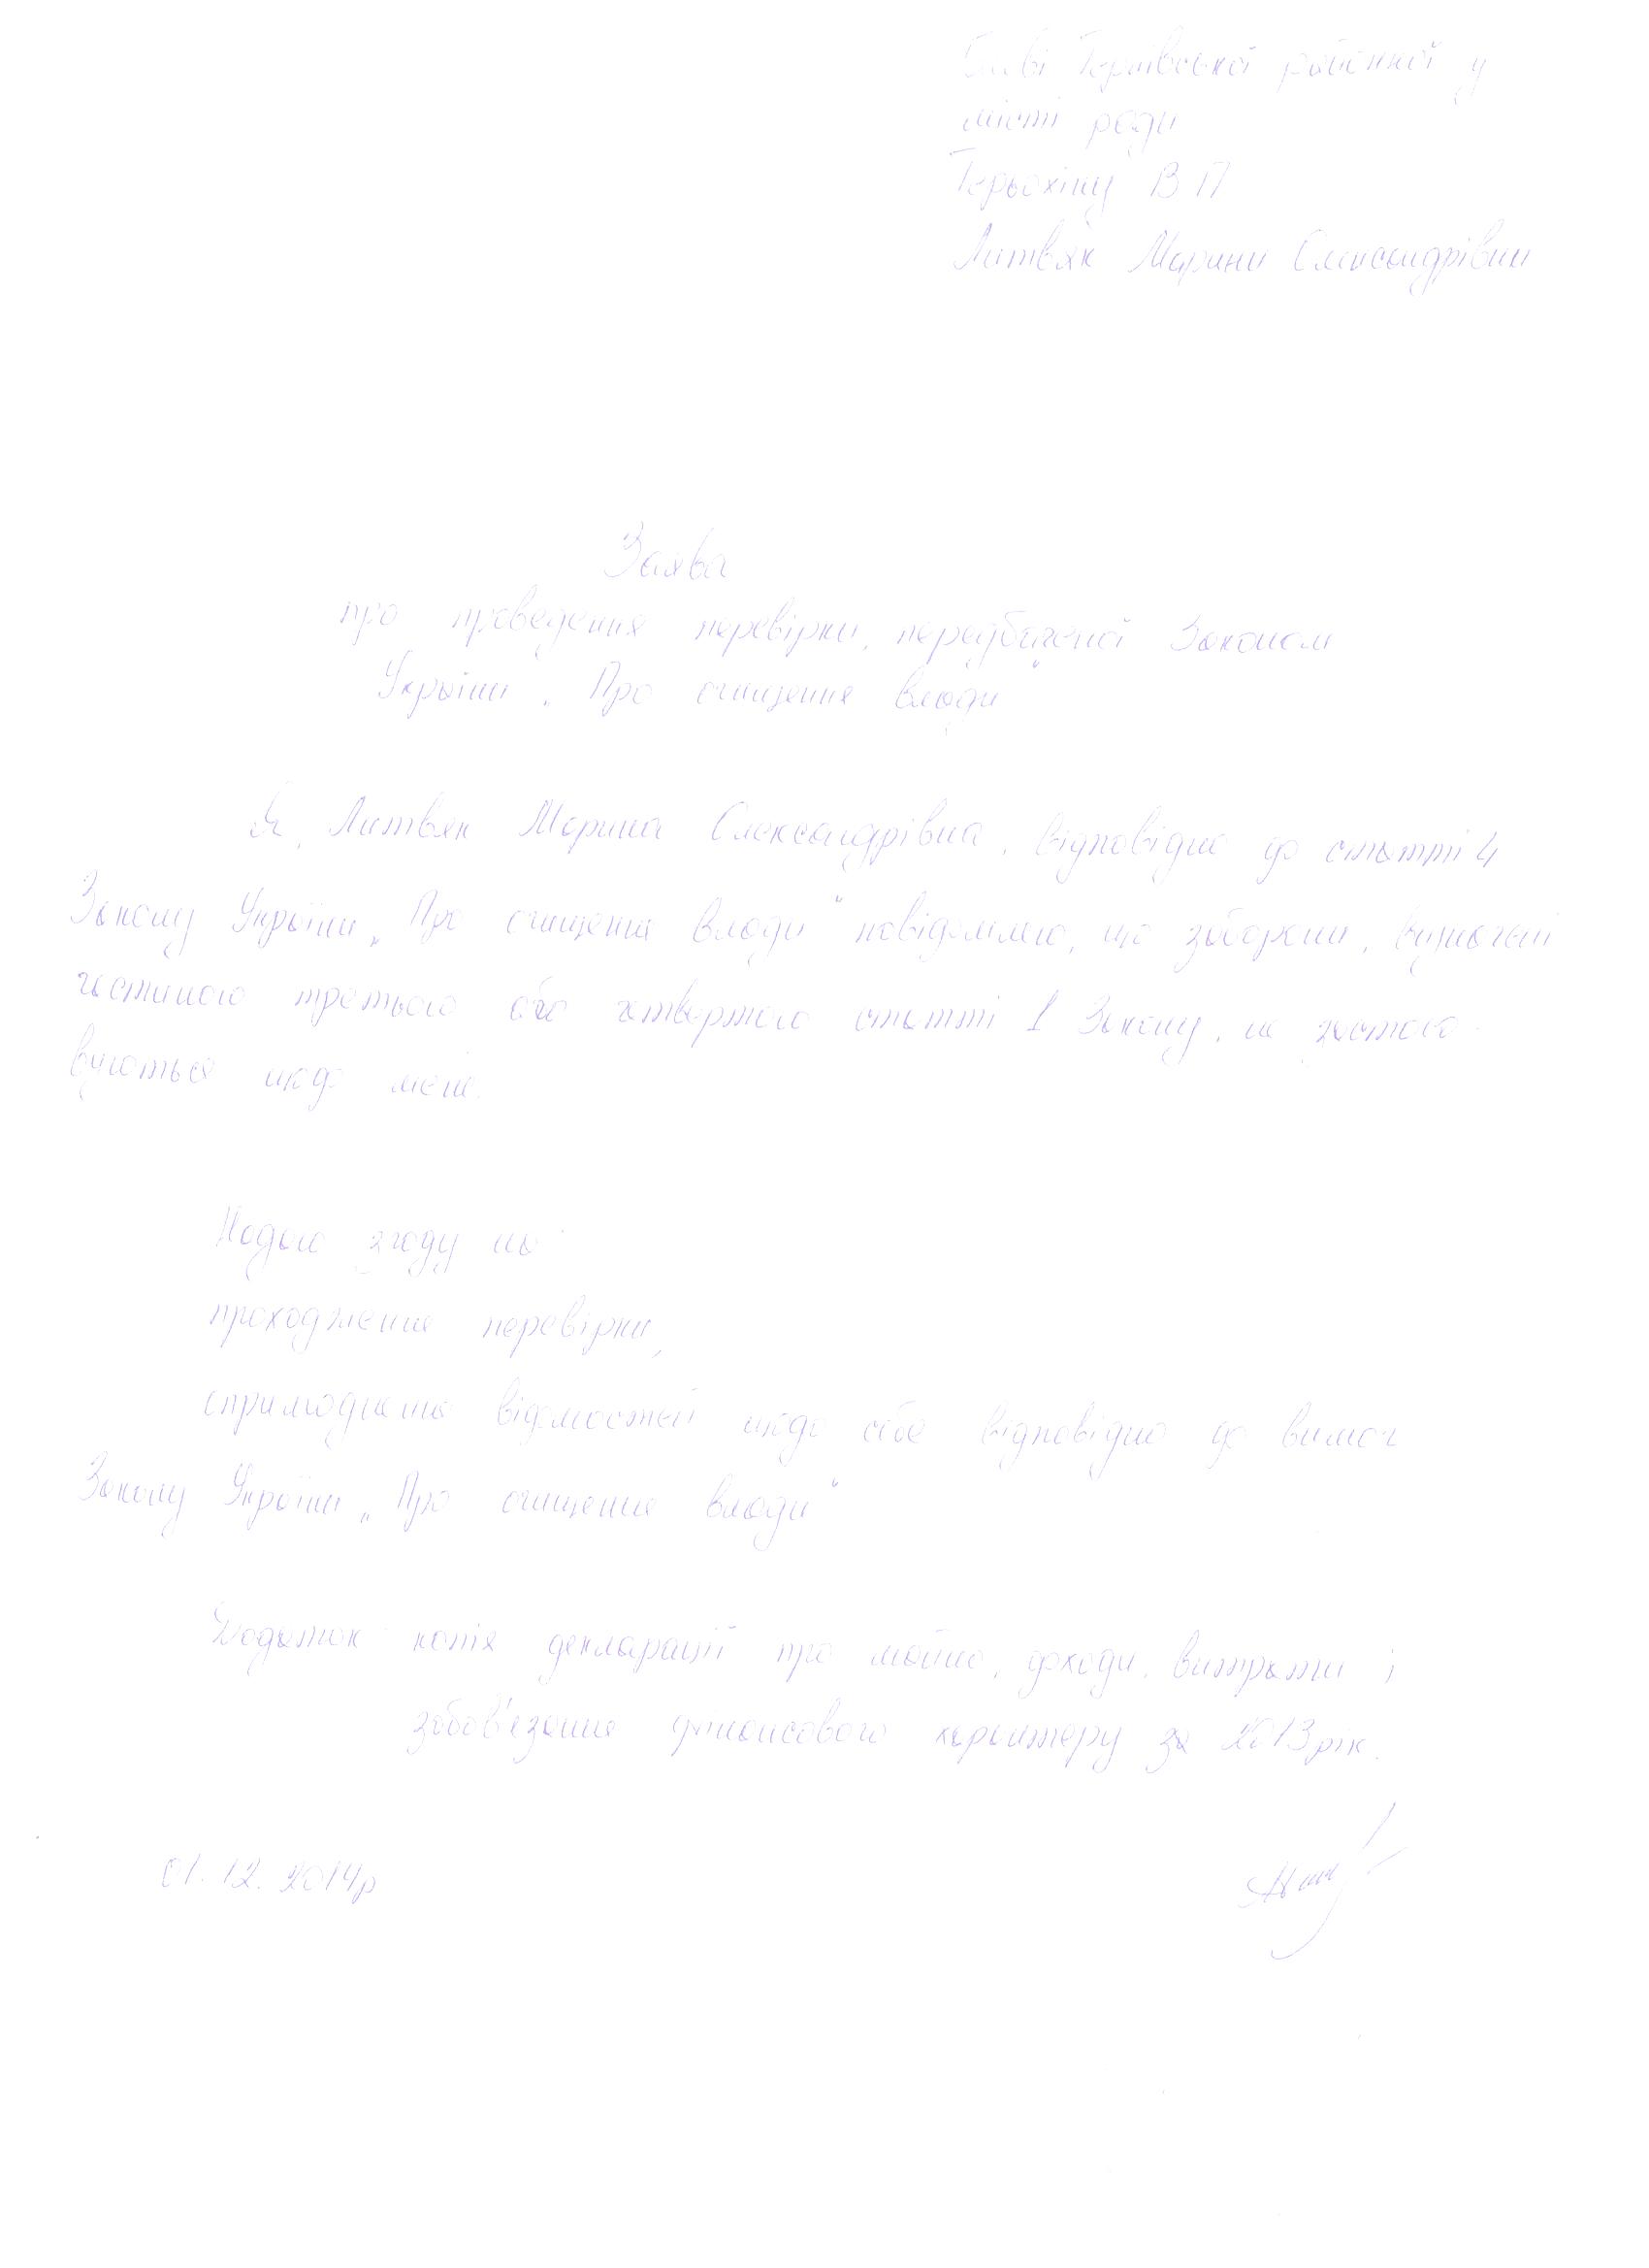 Голові Тернівської районної у
місті ради
Терьохіну В П
Литвяк Марини Олександрівни
Заява
про проведення перевірки, передбаченої Законом
України „Про очищення влади"
Я, Литвяк Марина Олександрівна, відповідно до статті 4
Закону України „Про очищення влади" повідомляю, що заборони, визначені
частиною третьою або четвертою статті 1 Закону, не застосо-
вуються щодо мене.
Надаю згоду на:
проходження перевірки,
оприлюднення відомостей щодо себе відповідно до вимог
Закону України „Про очищення влади"
Додаток: копія декларації про майно, доходи, витрати і
зобов'язання фінансового характеру за 2013 рік.
01.12.2014р